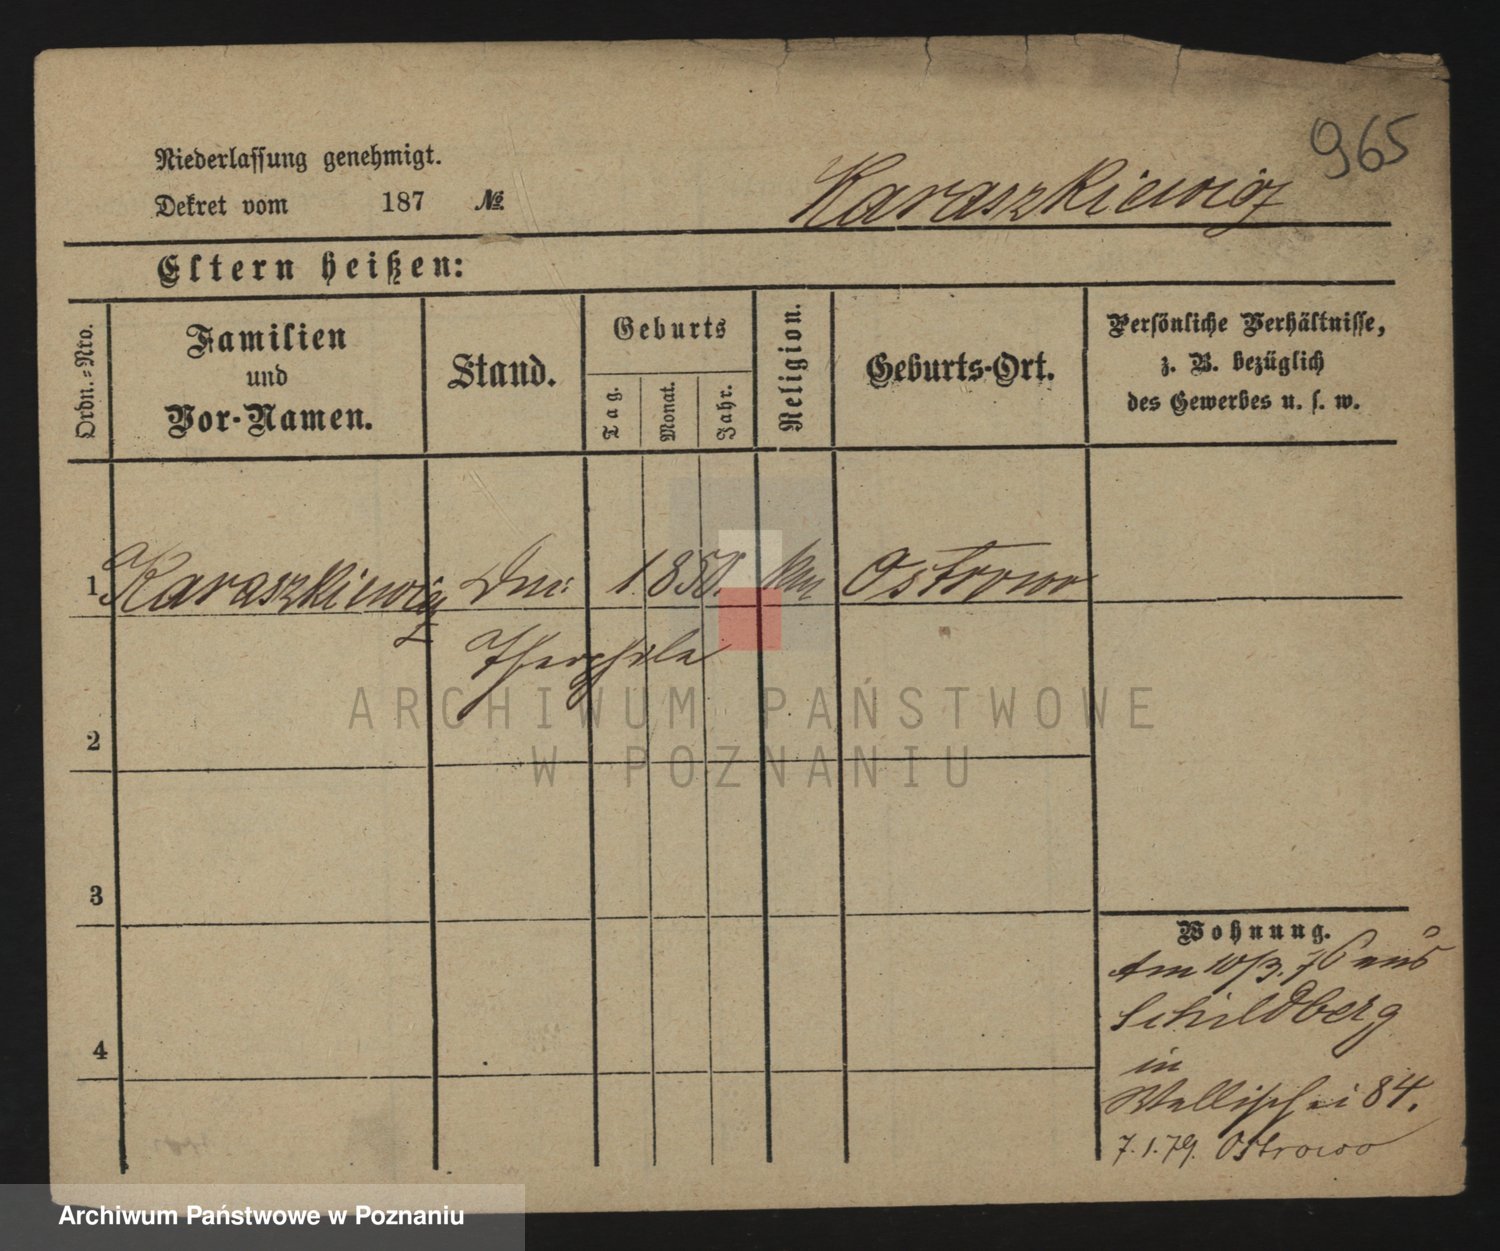 965
Niederlassung genehmigt.
Dekret vom 187 №
Karaszkiewicz
Eltern heißen:
Ordn.-Nro.
Familien
und
Vor-Namen.
Stand.
Geburts
Tag.
Monat.
Jahr.
Religion.
Geburts-Ort.
Persönliche Verhältnisse,
z. B. bezüglich
des Gewerbes u. s. w.
1 Karaszkiewicz 1850. Ostrowo
Theophila
2
3
4
Wohnung.
Am 10/3. 76 aus
Schildberg
in
Wallischei 84.
7.1.79. Ostrowo
ARCHIWUM PAŃSTWOWE
W POZNANIU
Archiwum Państwowe w Poznaniu